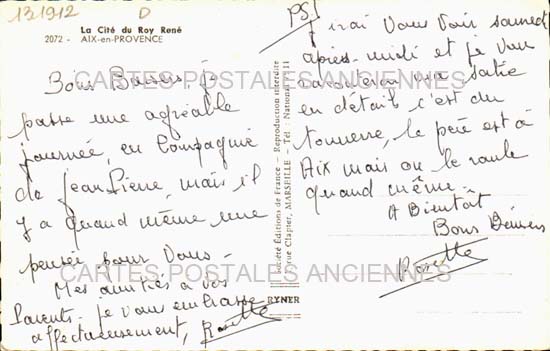 13.1912 D
La Cité du Roy René
2072 - AIX-en-PROVENCE
Bons Baisers, je
passe une agréable
journée, en Compagnie
de Jean Pierre, mais il
y a quand même une
pensée pour Vous -
Mes amitiés à vos
Parents - je vous embrasse
affectueusement, Rosette
Société Éditions de France - Reproduction interdite
rue Clapier, MARSEILLE - Tél : National 11
RYNER
PS J'irai Vous Voir samedi
après-midi et je Vous
raconterai ma
en détail c'est du
tonnerre, le père est à
Aix mais on le roule
quand même -
A Bientôt
Bons
Rosette
CARTES POSTALES ANCIENNES
CARTES POSTALES ANCIENNES